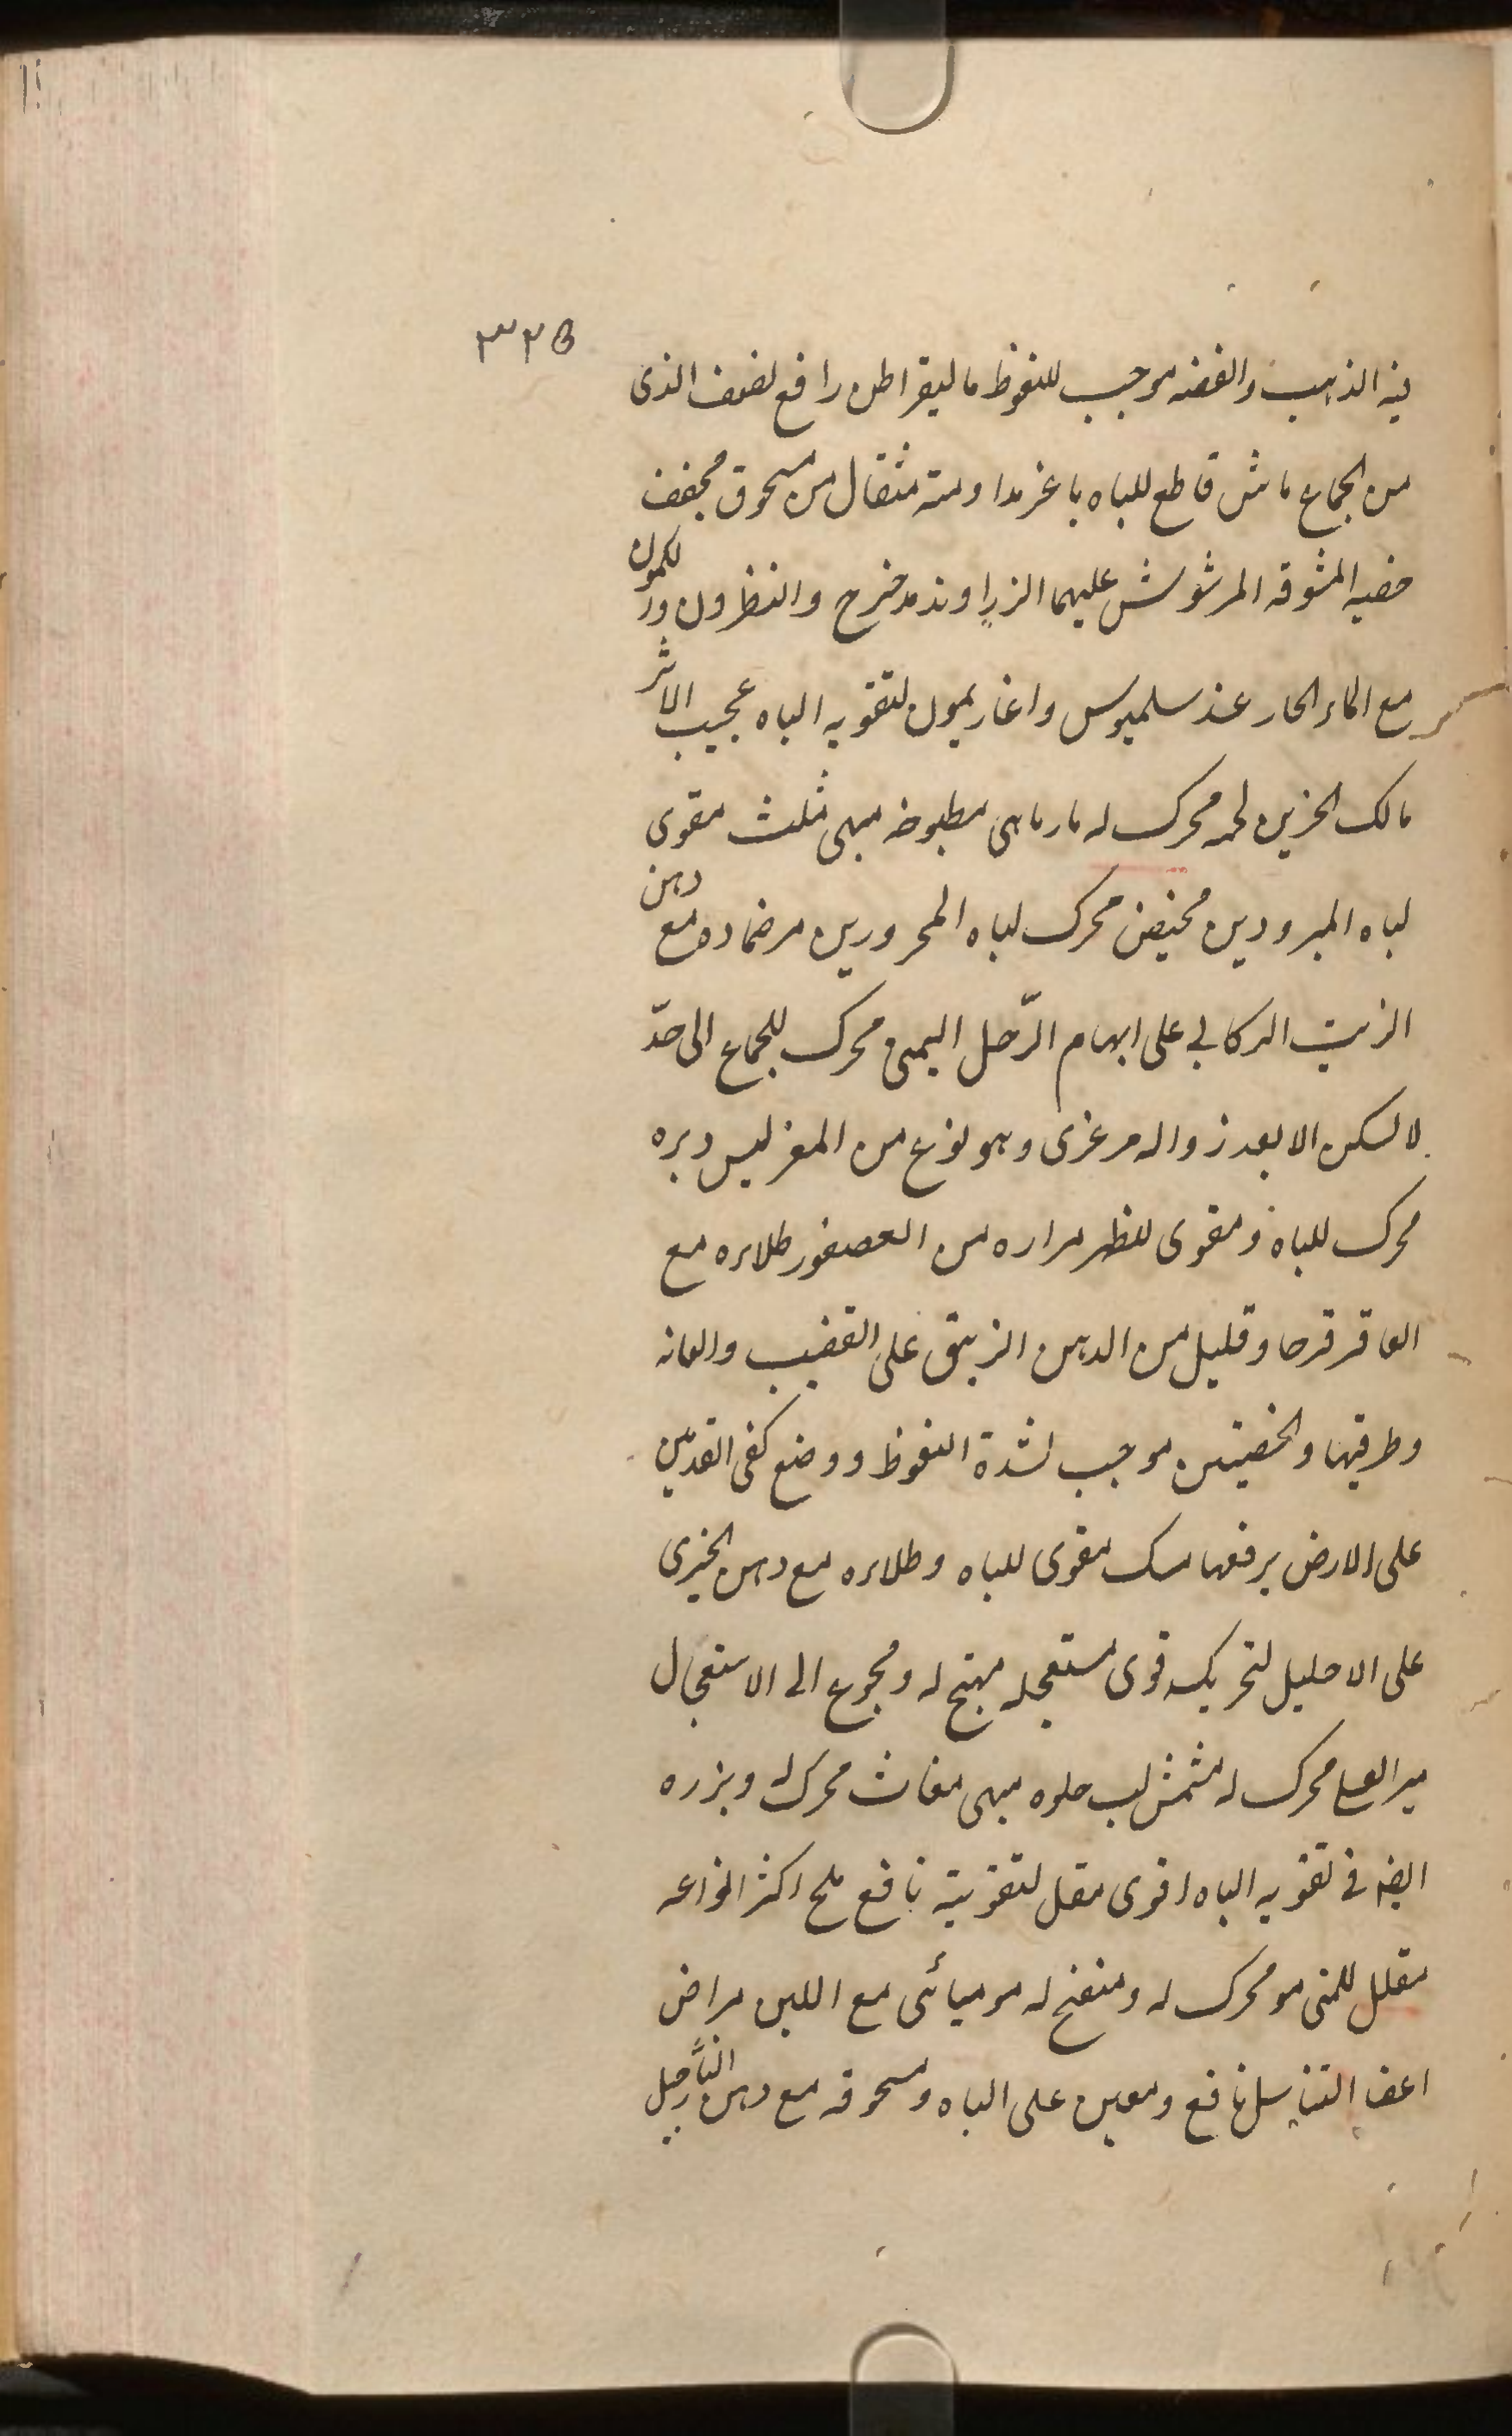 ٣٢٥
فيه الذهب والفضه موجب للنغوظ ماليقراطن رافع لضعف الذى
من الجماع ماش قاطع للباه باغر مداومته مثقال من مسحوق مجفف
خصيه المشوقه المرشوش عليها الزراوند مدخرج والنظرون ور لكمول
مع الماء الحار عند سلميوس واغاريمول لتقويه الباه عجيب الاثر
مالك الحزين لحمه محرك له مارماهى مطبوخه مبهى مثلث مقوى
لباه المبرودين مخيض محرك لباه المحرورين مرضماده مع دهن
الزيت الركابى على ابهام الرّجل اليمنى محرك للجماع الى حدّ
لا يسكن الا بعد زواله مرغزى وهو نوع من المغز لبس وبره
محرك للباه ومقوى للظهر مراره من العصفور طلاءه مع
العاقرقرحا وقليل من الدهن الزيبق على القضيب والعانه
وطرفيها والخصيتين موجب لشدة النغوظ ووضع كفى القدمين
على الارض يرفعها مسك مقوى للباه وطلاءه مع دهن الخيرى
على الاحليل لتحريك قوى مستعجله مهيج له ومجوع الى الاستعجال
محرك له مشمش لب حلوه مبهى مغاث محرك له وبزره
ايضه فى تقويه الباه اقوى مقل لتقويته نافع ملح اكثر انواعه
مقلل للمنى مو محرك له ومنفخ له موميائى مع اللبن مراض
اعضا التناسل نافع ومعين على الباه ومسحوقه مع دهن النارجيل